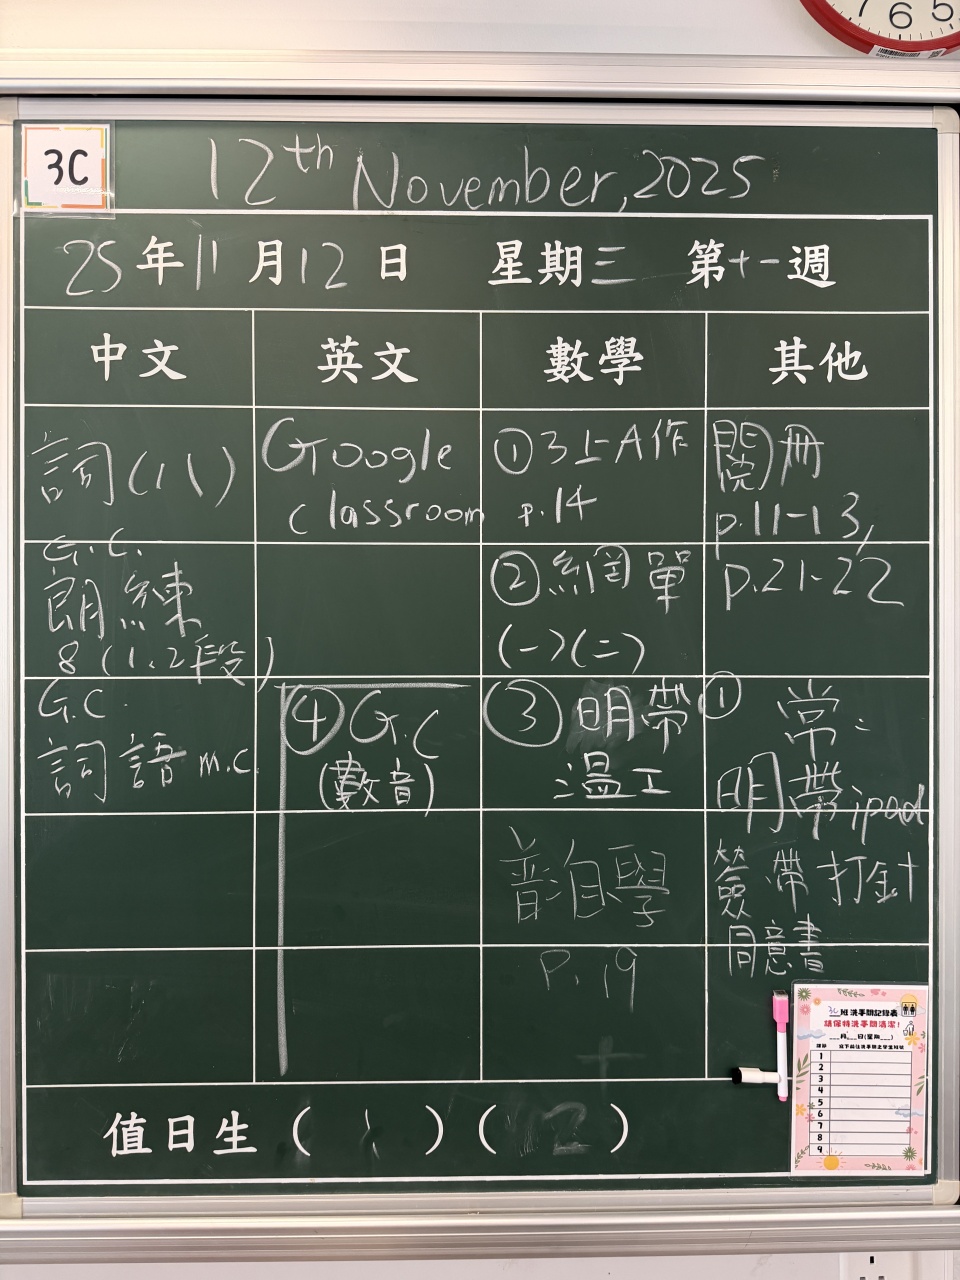 7 6 5
3C
12th November, 2025
25年11月12日 星期三 第十一週
中文 英文 數學 其他
詞(八)
G.C.
朗練
8(1、2段)
G.C.
詞語 m.c.
Google
classroom
④ G.C
(數音)
① 3上A作
p.14
② 網單
(一)(二)
③ 明帶
溫工
普自學
P.19
閱冊
p.11-13,
p.21-22
① 常:
明帶ipad
簽帶打針
同意書
值日生 ( 1 ) ( 2 )
3C班洗手間記錄表
請保持洗手間清潔!
___月___日(星期___)
1
2
3
4
5
6
7
8
9